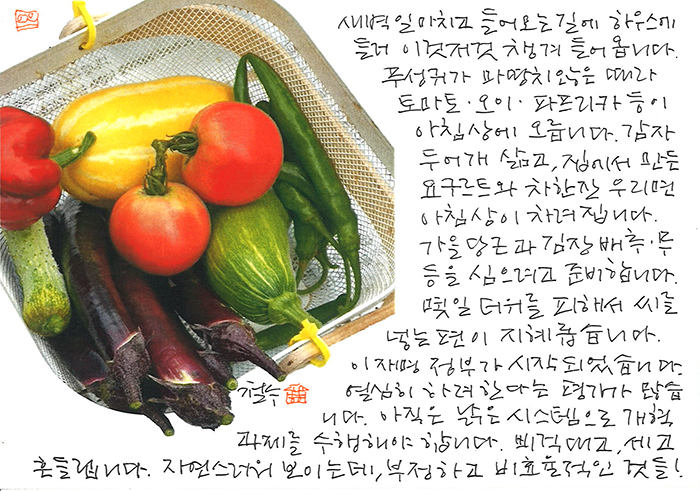 새벽일 마치고 들어오는 길에 하우스에
들러 이것저것 챙겨 들어옵니다.
푸성귀가 마땅치 않은 때라
토마토·오이·파프리카 등이
아침상에 오릅니다. 감자
두어개 삶고, 집에서 만든
요구르트와 차한잔 우리면
아침상이 차려집니다.
가을 당근과 김장 배추·무
등을 심으려고 준비합니다.
몇일 더위를 피해서 씨를
넣는 편이 지혜롭습니다.
이재명 정부가 시작되었습니다.
열심히 하려한다는 평가가 많습
니다. 아직은 낡은 시스템으로 개혁
과제를 수행해야 합니다. 삐걱대고, 세고
흔들립니다. 자연스러워 보이는데, 부정하고 비효율적인 것들!
철수